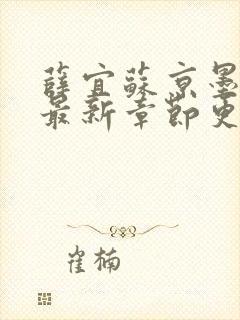 薛宜蘇京墨
最新章節更
崔楠